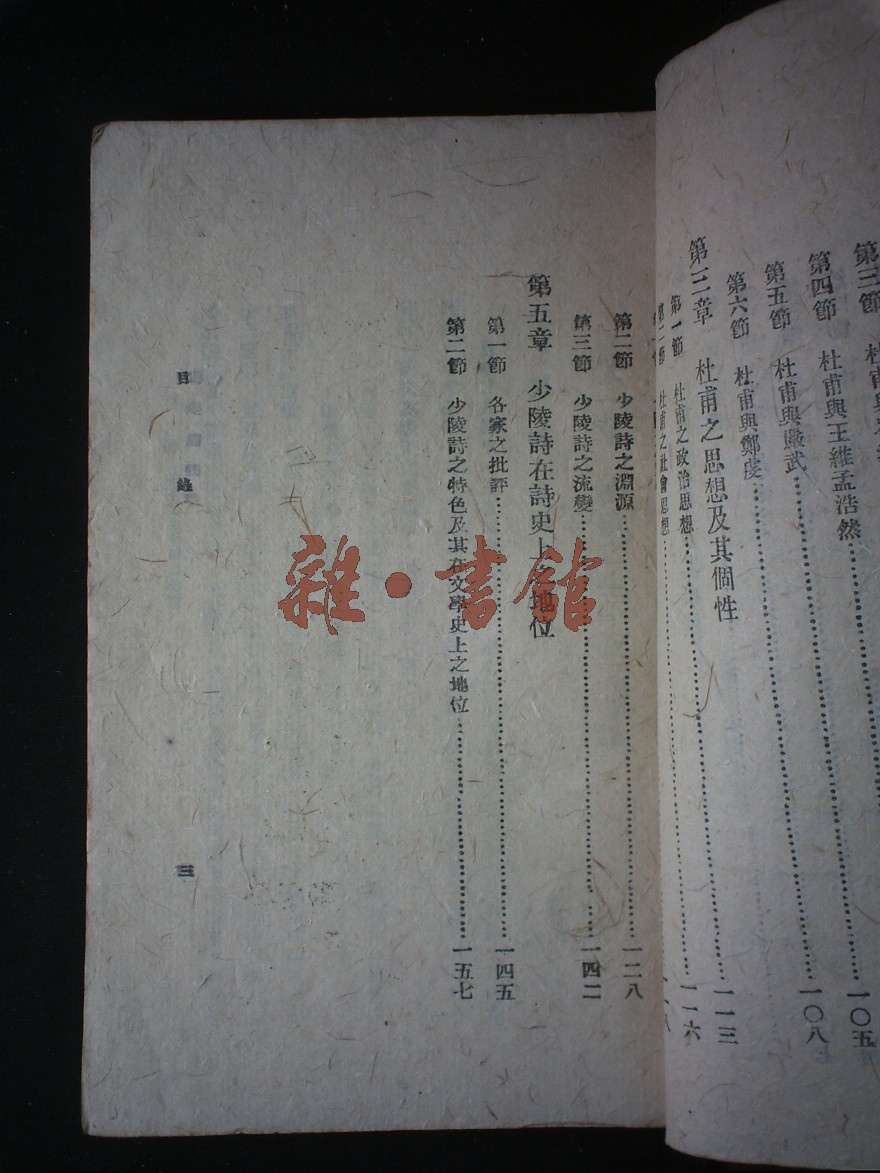 第三節 杜甫與
第四節 杜甫與王維孟浩然……一〇五
第五節 杜甫與嚴武……一〇八
第六節 杜甫與鄭虔……一一三
第三章 杜甫之思想及其個性
第一節 杜甫之政治思想……一一六
第二節 杜甫之社會思想……
第二節 少陵詩之淵源……一二八
第三節 少陵詩之流變……一四二
第五章 少陵詩在詩史上之地位
第一節 各家之批評……一四五
第二節 少陵詩之特色及其在文學史上之地位……一五七
目錄
三
雜·書館